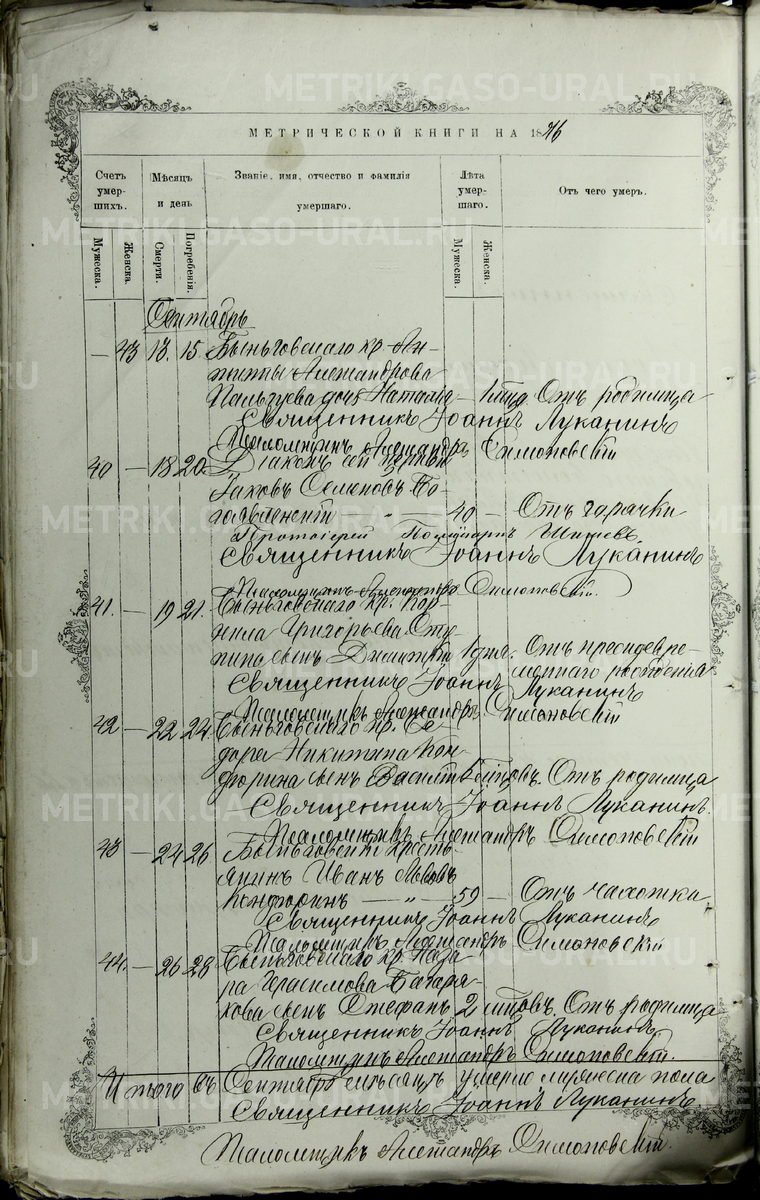 METRIKI.GASO-URAL.RU
МЕТРИЧЕСКОЙ КНИГИ НА 1876
Счетъ умер-шихъ.
Мѣсяцъ и день
Званіе, имя, отчество и фамилія умершаго.
Лѣта умер-шаго.
Отъ чего умеръ.
Мужеска.
Женска.
Смерти.
Погребенія.
Мужеска.
Женска.
Сентябрь
— 43 13. 15. Быньговскаго кр. Ан-
Александрова
дочь Наталія — 1 год. Отъ родимца
Священникъ Іоаннъ Луканинъ
Псаломщикъ Александръ Симоновскій
40 — 18 20. Діаконъ сей церкви
Іаковъ Семеновъ Бо-
гоявленскій " — 40 — Отъ горячки
Протоіерей
Священникъ Іоаннъ Луканинъ
Псаломщикъ Александръ Симоновскій.
41. — 19 21. Быньговскаго кр. Кор-
нила Григорьева Сту-
пина сынъ Димитрій 1 дня. Отъ преждевре-
меннаго рожденія
Священникъ Іоаннъ Луканинъ
Псаломщикъ Александръ Симоновскій
42 — 22 24. Быньговскаго кр. Ѳе-
дора Никитина Кон-
сынъ Василій Отъ родимца
Священникъ Іоаннъ Луканинъ.
Псаломщикъ Александръ Симоновскій
43 — 24 26 Быньговскій кресть-
янинъ Иванъ Львовъ
— " — 59 — Отъ чахотки.
Священникъ Іоаннъ Луканинъ
Псаломщикъ Александръ Симоновскій
44. — 26 28 Быньговскаго кр. Наза-
ра Герасимова
сынъ Стефанъ 2 Отъ родимца
Священникъ Іоаннъ Луканинъ
Псаломщикъ Александръ Симоновскій.
Итого въ Сентябрѣ мѣсяцѣ умерло пола
Священникъ Іоаннъ Луканинъ
Псаломщикъ Александръ Симоновскій.